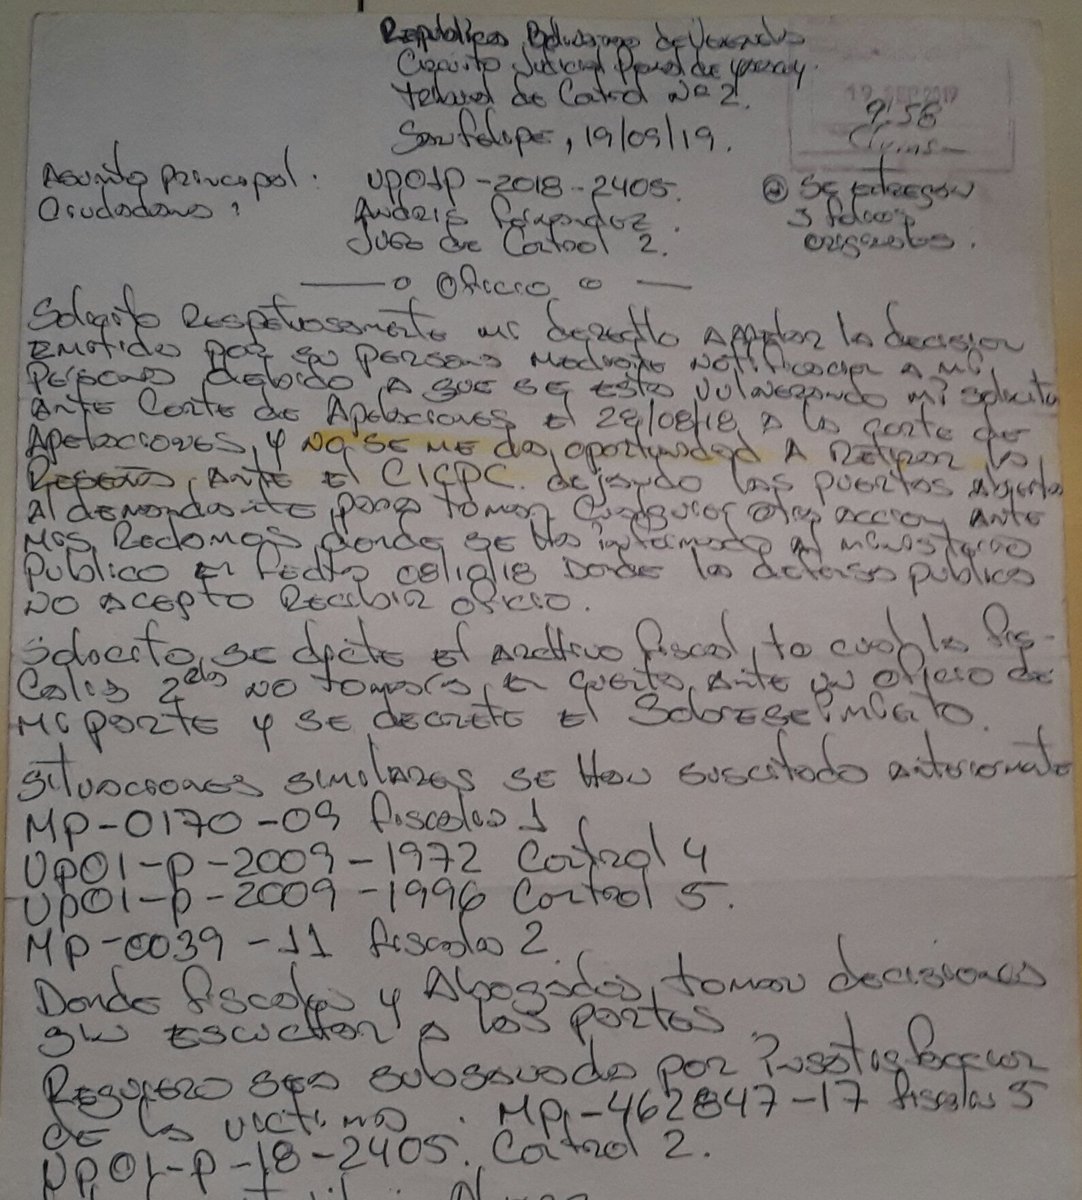 Republica Bolivariana de Venezuela
Circuito Judicial Penal de Yaracuy.
Tribunal de Control Nº 2.
San Felipe, 19/09/19.
19 SEP 2019
9:58
Asunto principal: UP01P-2018-2405.
Ciudadano:
Juez de Control 2.
Se entregan
3 folios
Oficio
Solicito Respetuosamente mi derecho Apelar la decision
Emitida por su persona mediante Notificacion a mi
persona debido a que se esta vulnerando mi solicitud
Ante Corte de Apelaciones el 28/08/18 a la corte de
Apelaciones, y NO SE ME da oportunidad A Retirar la
Reseña, Ante el CICPC. dejando las puertas abiertas
Al demandante para tomar cualquier otra accion ante
mis Reclamos donde se ha informado al ministerio
Publico en fecha 08/10/18 Donde la defensa publica
NO Acepto Recibir oficio.
Solicito, se dicte el archivo fiscal, to cual la fis-
calia 2da NO tomaria en cuenta, Ante un oficio de
mi parte y se decrete el Sobreseimiento.
Situaciones similares se han suscitado anteriormente
MP-0170-09 fiscalia 1
UP01-p-2009-1972 Control 4
UP01-p-2009-1996 Control 5.
MP-0039-11 fiscalia 2.
Donde fiscalia y Abogados, toman decisiones
sin escuchar a las partes
Requiero sea subsanado por Insatisfaccion
de la victima. MP-462847-17 fiscalia 5
UP01-P-18-2405. Control 2.